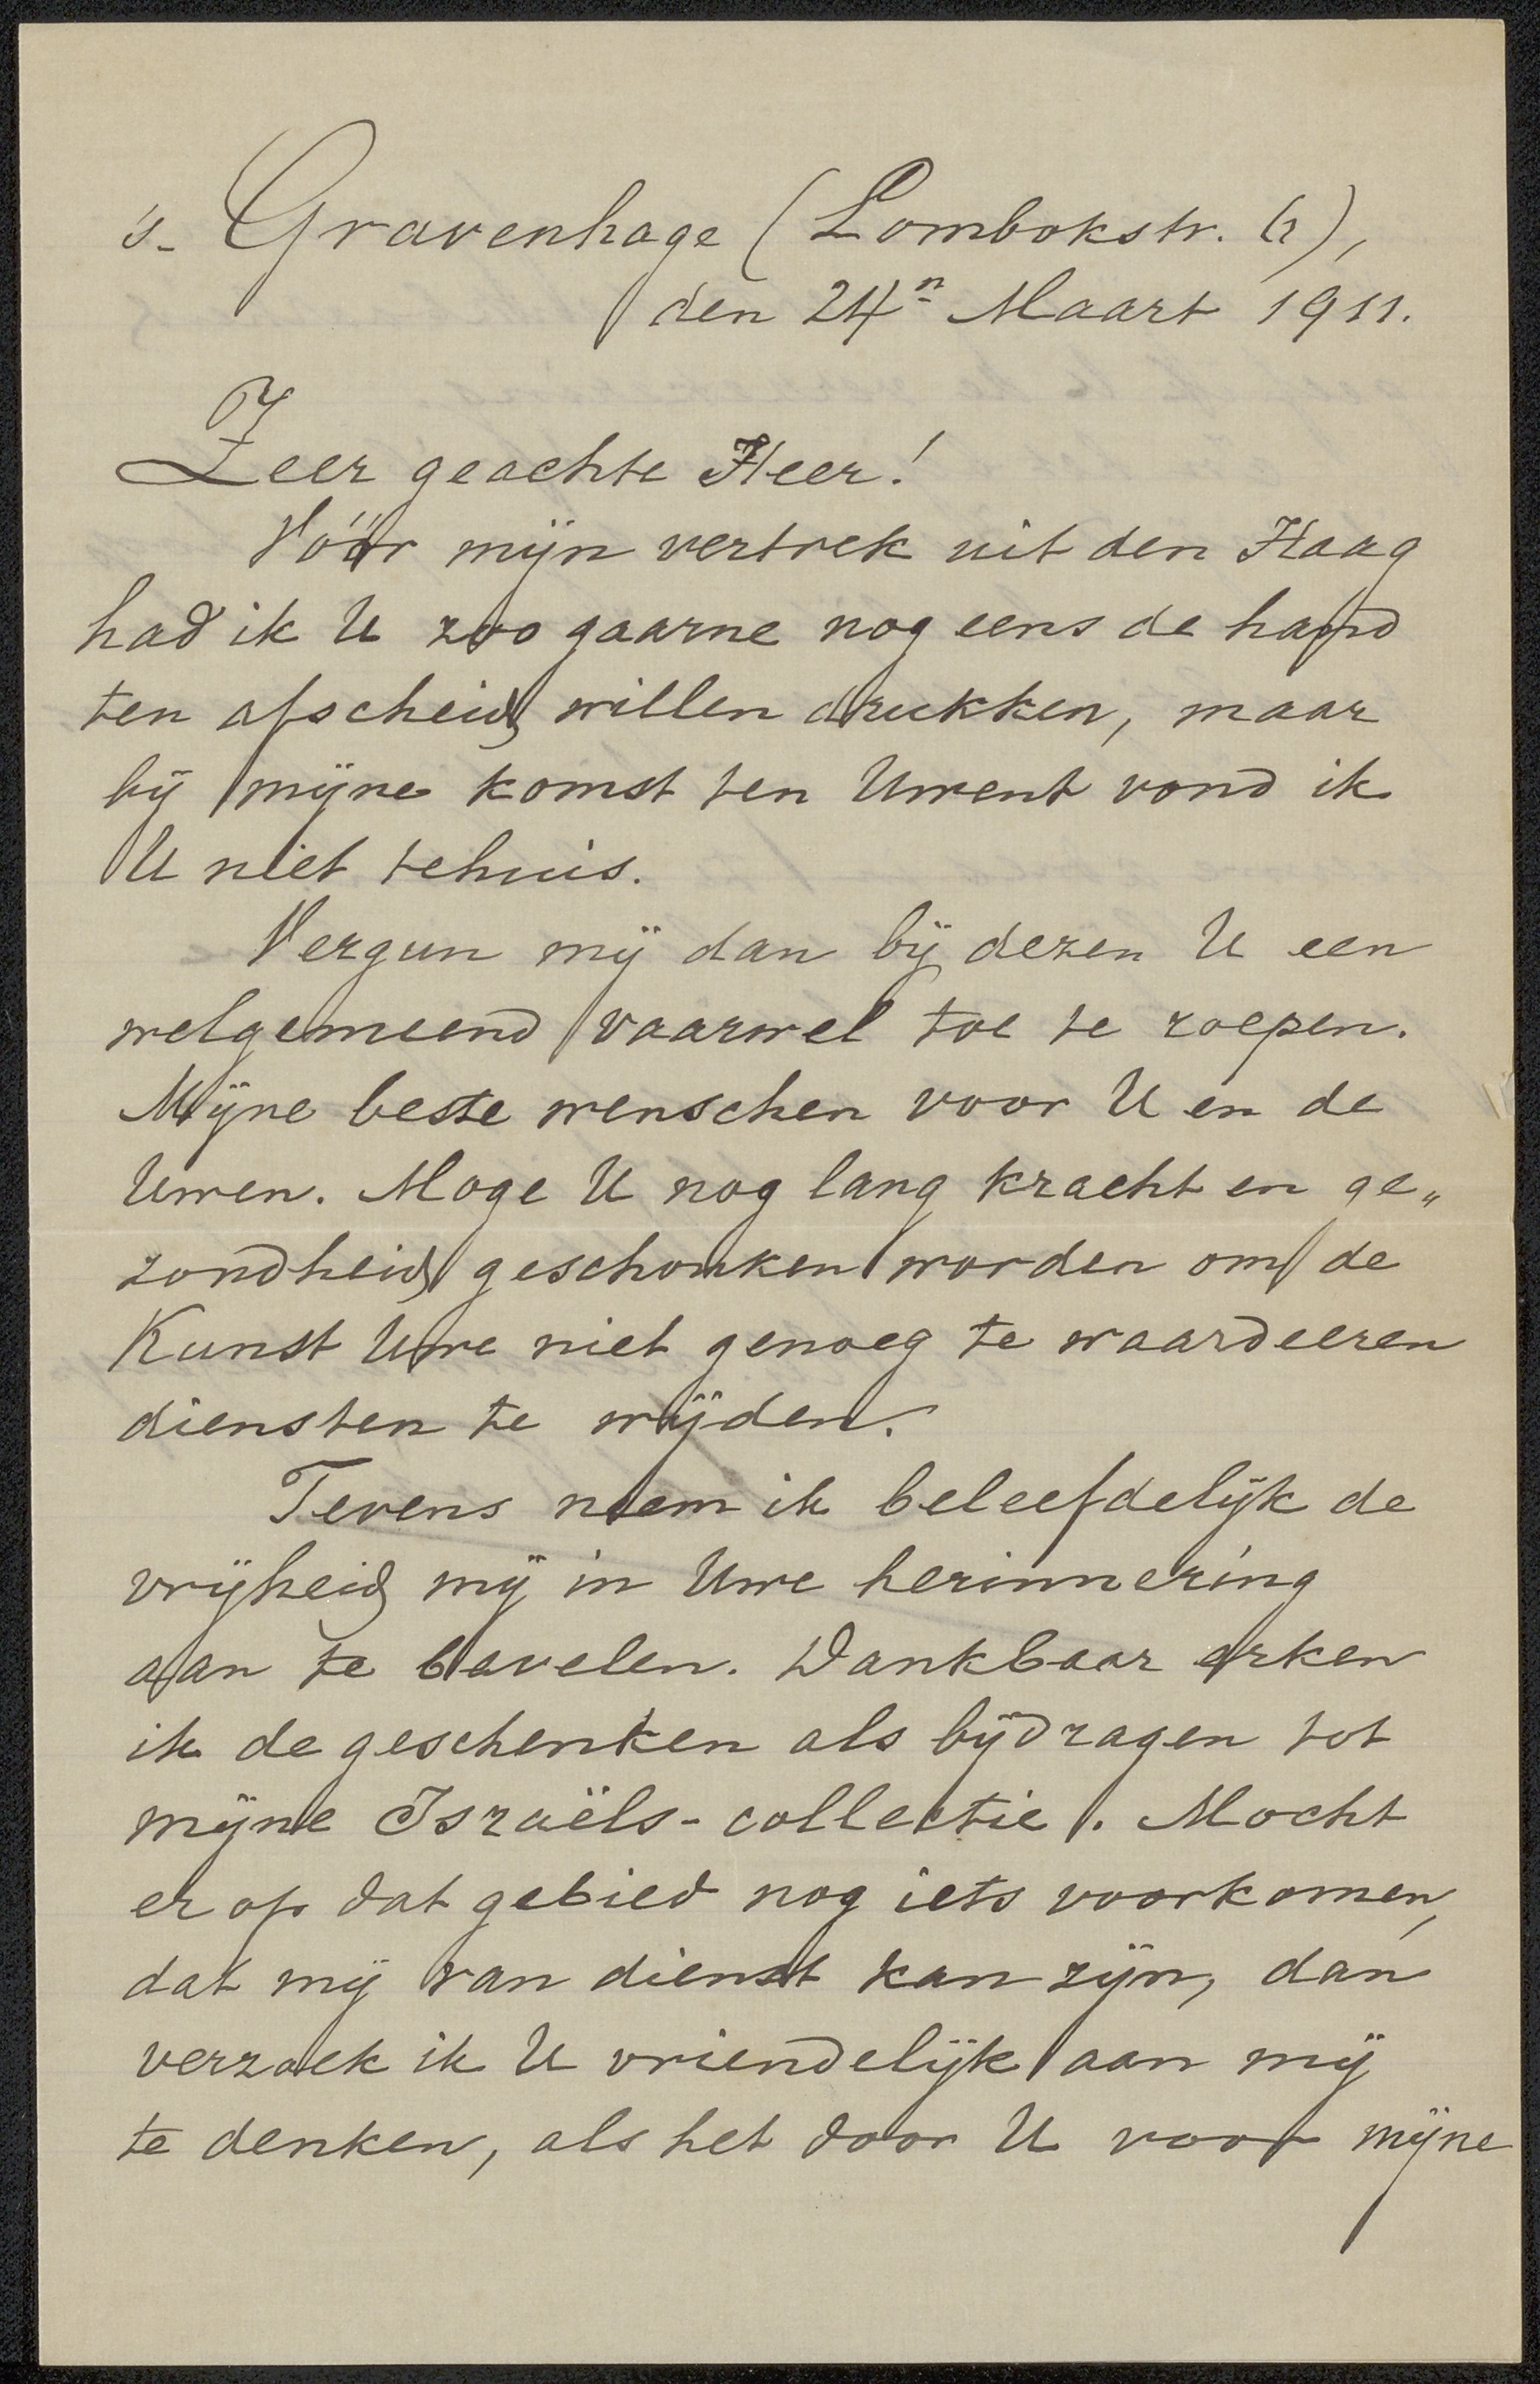 's-Gravenhage (Lombokstr. ),
den 24n Maart 1911.
Zeer geachte Heer!
Vóór mijn vertrek uit den Haag
had ik U zoo gaarne nog eens de hand
ten afscheid willen drukken, maar
bij mijne komst ten Uwent vond ik
U niet tehuis.
Vergun mij dan bij dezen U een
welgemeend vaarwel toe te roepen.
Mijne beste wenschen voor U en de
Uwen. Moge U nog lang kracht en ge„
zondheid geschonken worden om de
Kunst Uwe niet genoeg te waardeeren
diensten te wijden.
Tevens neem ik beleefdelijk de
vrijheid mij in Uwe herinnering
aan te bevelen. Dankbaar erken
ik de geschenken als bijdragen tot
mijne Israëls-collectie. Mocht
er op dat gebied nog iets voorkomen,
dat mij van dienst kan zijn, dan
verzoek ik U vriendelijk aan mij
te denken, als het door U voor mijne